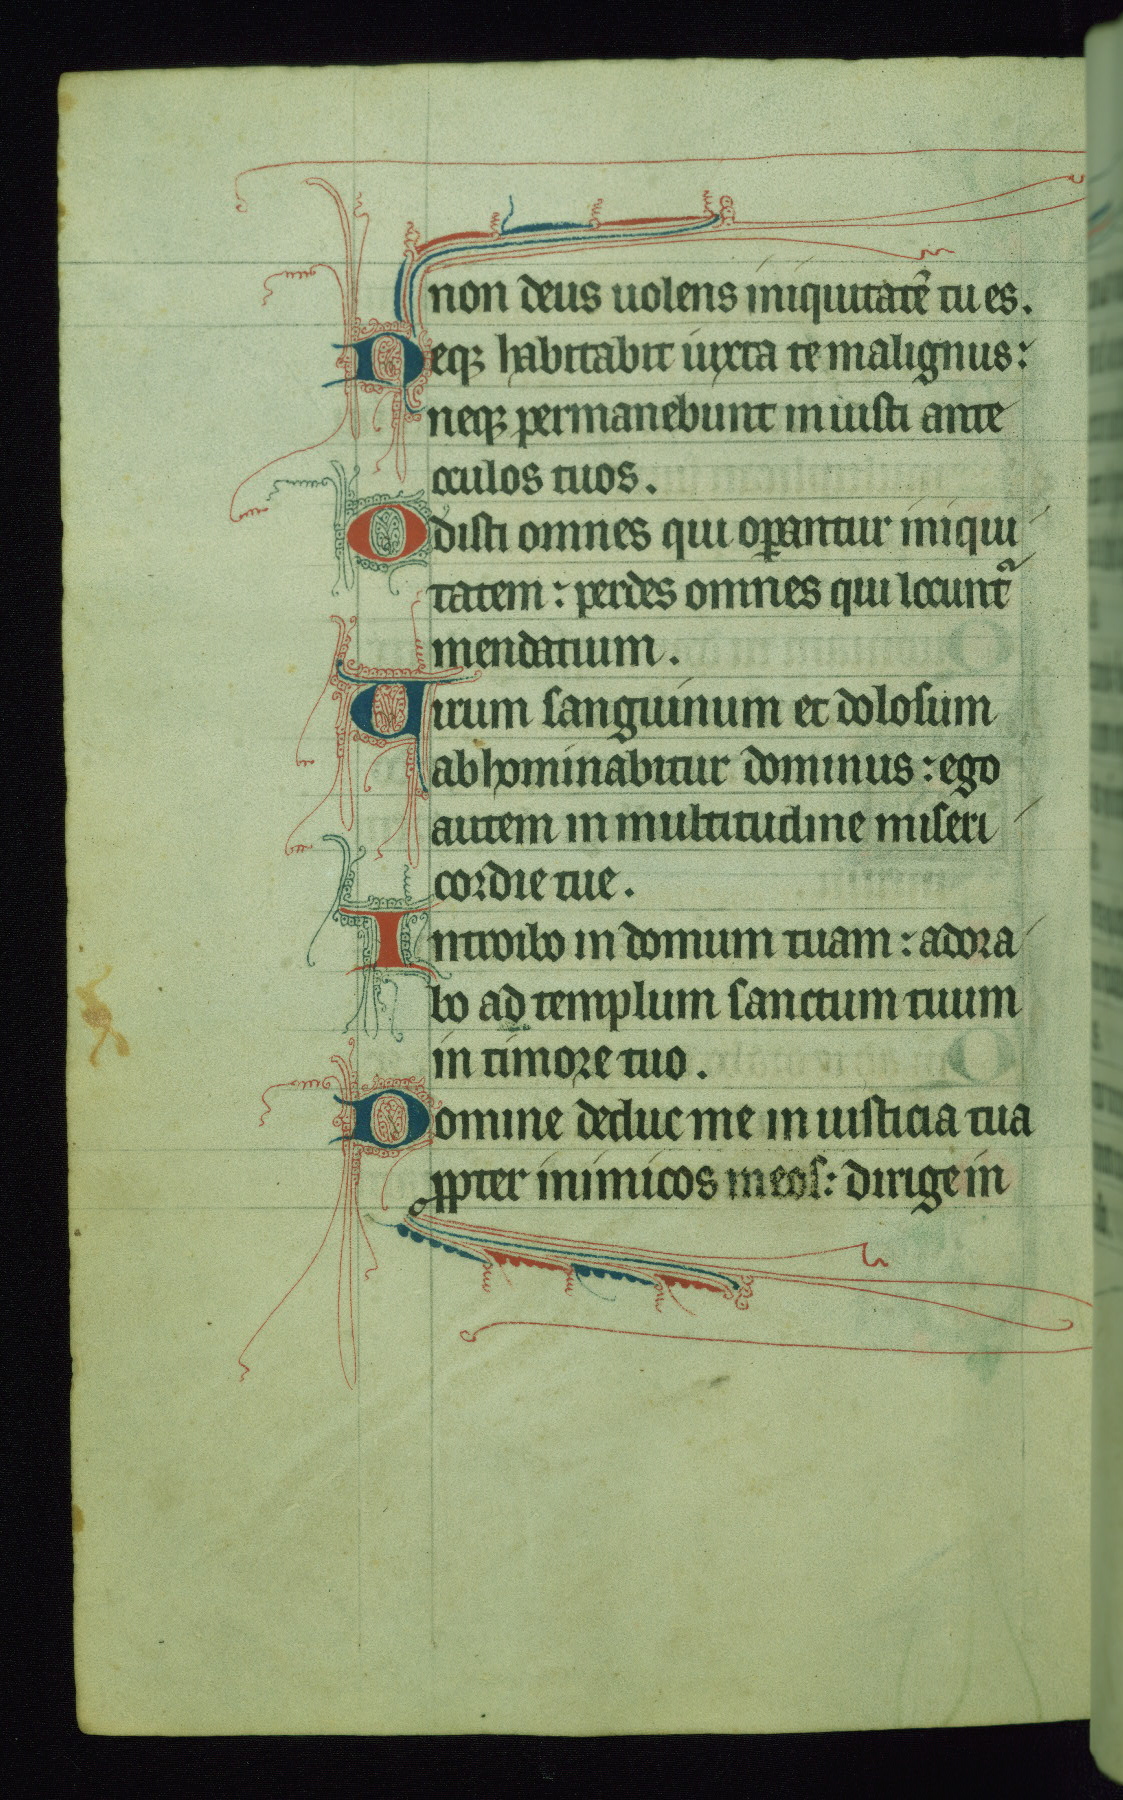 non deus uolens iniquitatē tu es.
Neqꝫ habitabit iuxta te malignus:
neqꝫ permanebunt iniusti ante
oculos tuos.
Odisti omnes qui oꝑantur iniqui
tatem: perdes omnes qui locunt᷑
mendatium.
Uirum sanguinum et dolosum
abhominabitur dominus: ego
autem in multitudine miseri
cordie tue.
Introibo in domum tuam: adora
bo ad templum sanctum tuum
in timore tuo.
Domine deduc me in iusticia tua
ꝓpter inimicos meos: dirige in